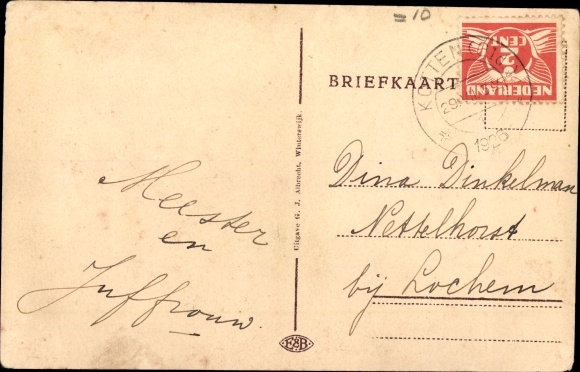 = 10
BRIEFKAART
NEDERLAND
2
CENT
1926
Meester
en
Juffrouw.
Uitgave G. J. Albrecht, Winterswijk.
Dina Dinkelman
Nettelhorst
bij Lochem